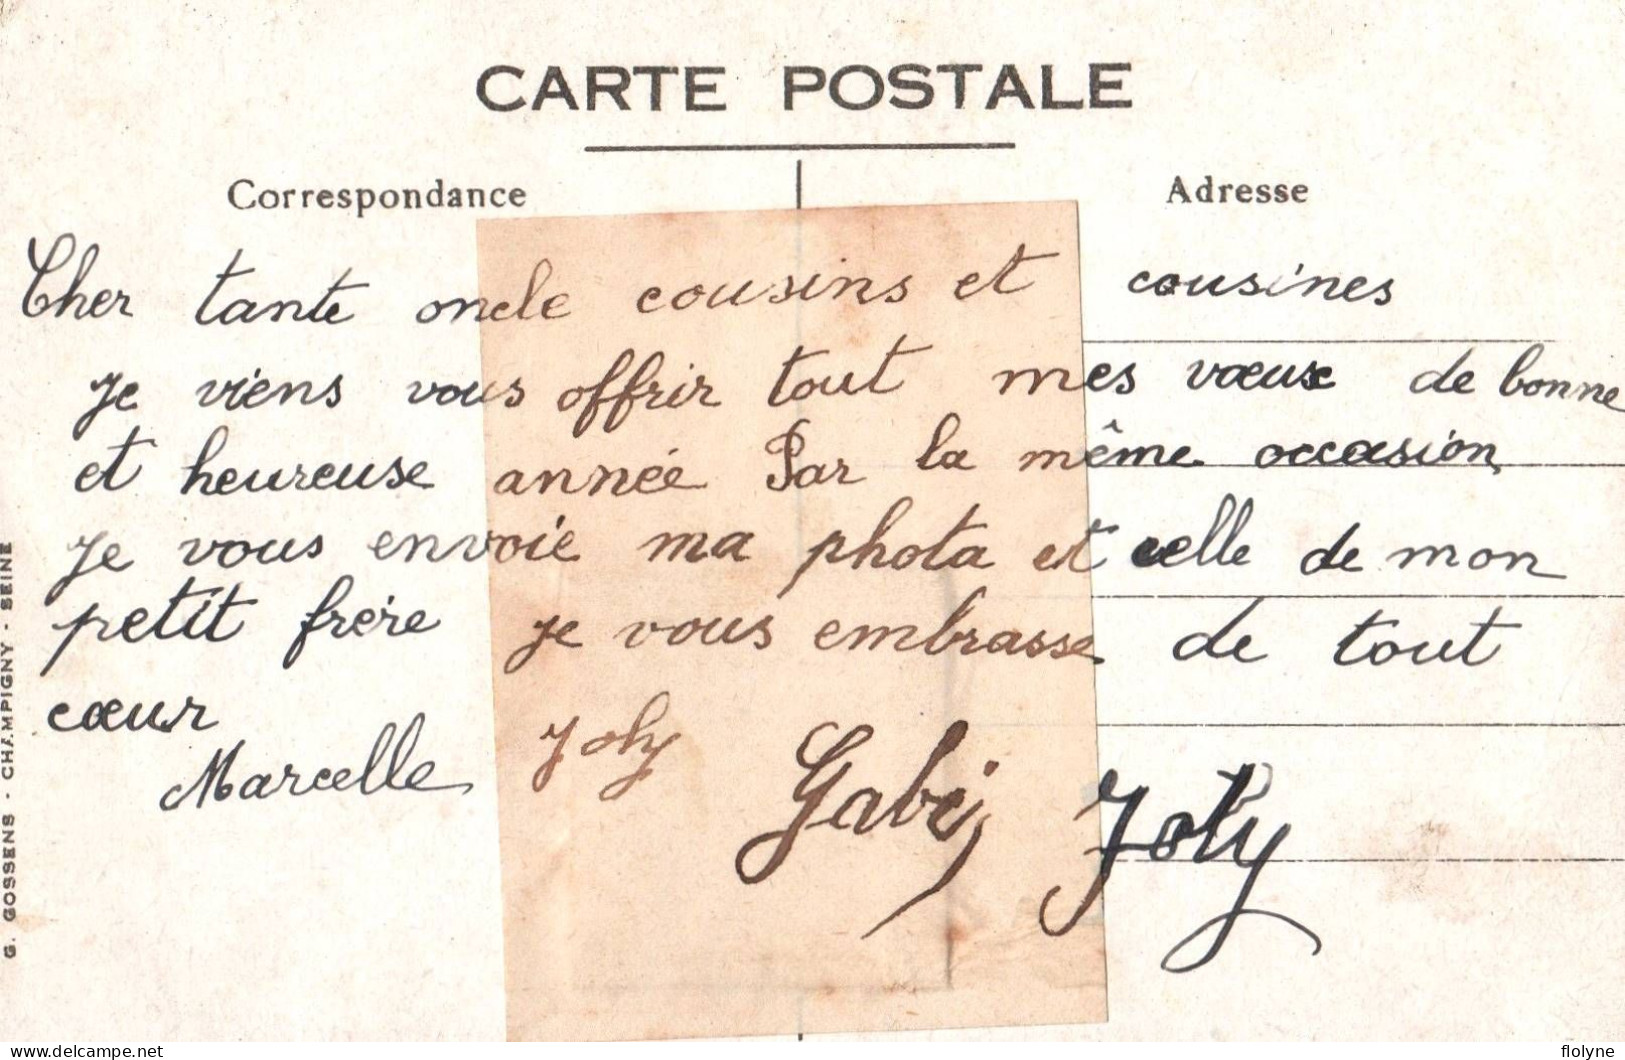 CARTE POSTALE
Correspondance
Adresse
Cher tante oncle cousins et cousines
Je viens vous offrir tout mes vœux de bonne
et heureuse année Par la même occasion
Je vous envoie ma photo et celle de mon
petit frère je vous embrasse de tout
cœur
Marcelle Joly
Gaby Joly
G. GOSSENS - CHAMPIGNY - SEINE
www.delcampe.net
flolyne